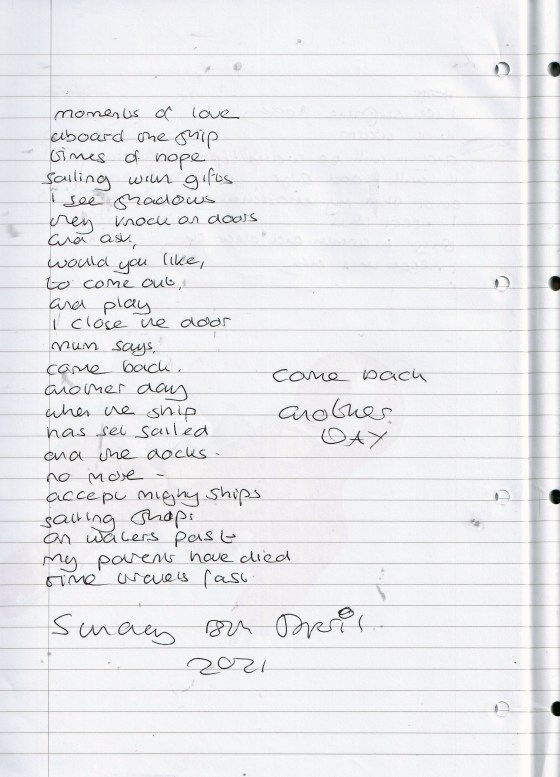 moments of love
aboard the ship
times of hope
sailing with gifts
I see shadows
they knock on doors
and ask,
would you like,
to come out,
and play
I close the door
mum says,
come back.
another day
when the ship
has set sailed
and the docks.
no more -
accept mighty ships
sailing ships
on waters past
my parents have died
time travels fast.
come back
another.
DAY
Sunday 18th April
2021